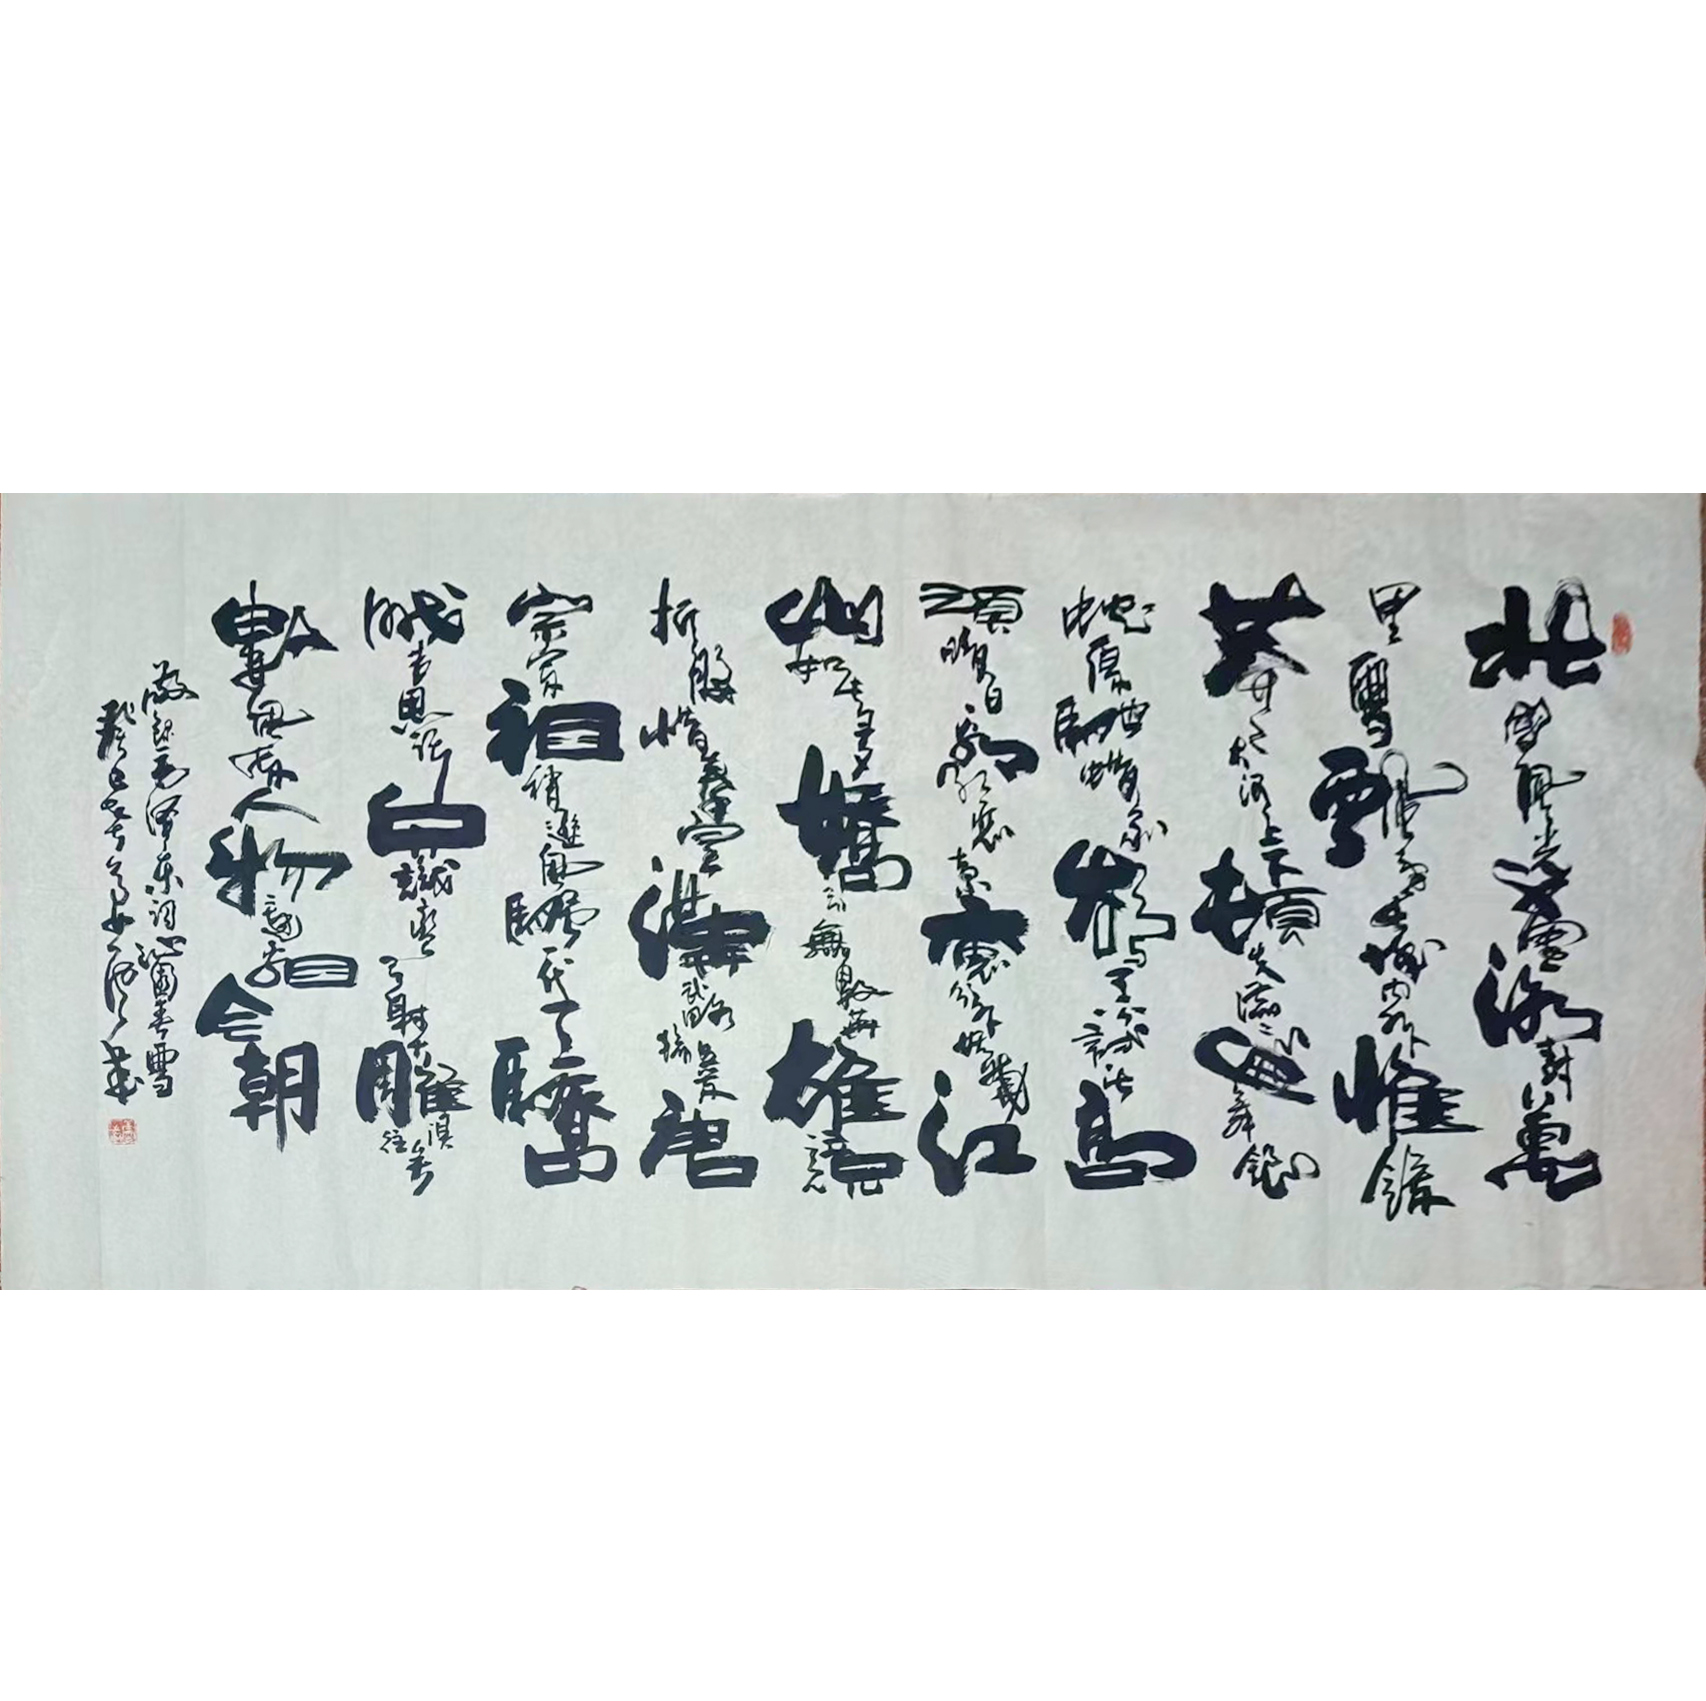 北國風光千里冰封萬
里雪飄望長城內外惟餘
莽莽大河上下頓失滔滔山舞銀
蛇原馳蠟象欲與天公試比高
須晴日看紅裝素裹分外妖嬈江
山如此多嬌引無數英雄競
折腰惜秦皇漢武略輸文采唐
宗宋祖稍遜風騷一代天驕
成吉思汗只識彎弓射大雕俱往矣
數風流人物還看今朝
敬錄毛澤東詞沁園春雪
書